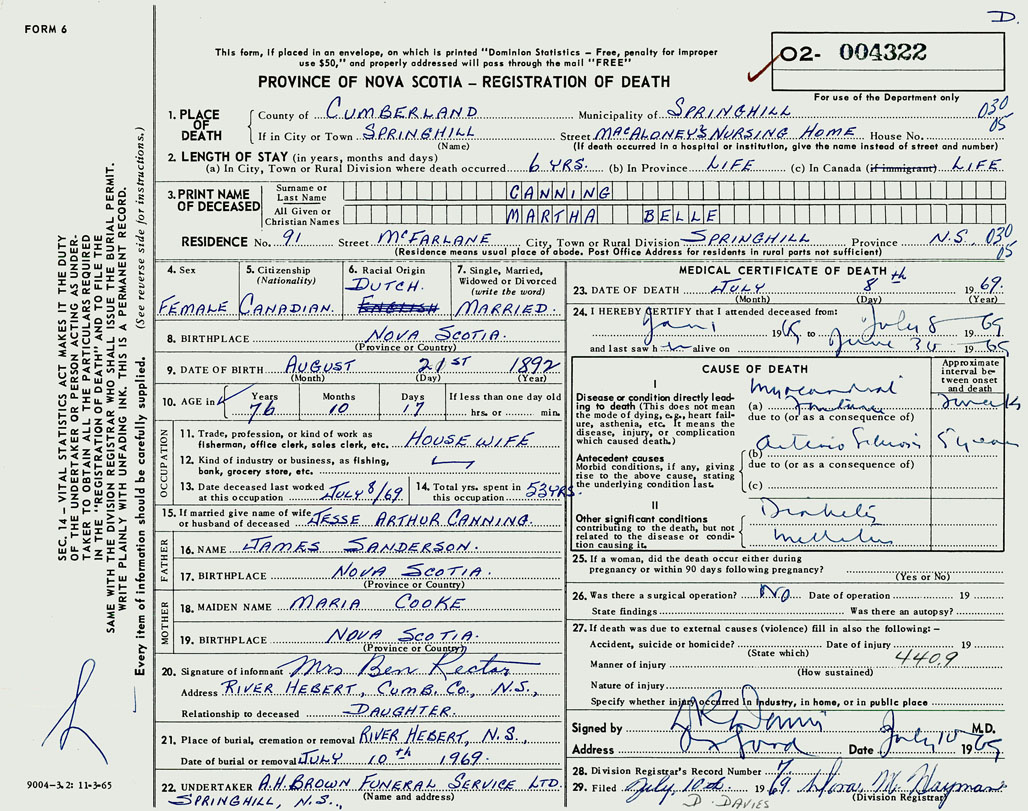 D.
FORM 6
This form, if placed in an envelope, on which is printed "Dominion Statistics – Free, penalty for improper
use $50," and properly addressed will pass through the mail "FREE"
O2- 004322
PROVINCE OF NOVA SCOTIA – REGISTRATION OF DEATH
For use of the Department only
1. PLACE OF DEATH
County of CUMBERLAND Municipality of SPRINGHILL 030
If in City or Town SPRINGHILL Street MACALONEY'S NURSING HOME House No. 05
(Name) (If death occurred in a hospital or institution, give the name instead of street and number)
2. LENGTH OF STAY (in years, months and days)
(a) In City, Town or Rural Division where death occurred 6 YRS. (b) In Province LIFE (c) In Canada (if immigrant) LIFE
3. PRINT NAME OF DECEASED
Surname or Last Name CANNING
All Given or Christian Names MARTHA BELLE
RESIDENCE No. 91 Street MCFARLANE City, Town or Rural Division SPRINGHILL Province N.S. 030
(Residence means usual place of abode. Post Office Address for residents in rural parts not sufficient) 05
4. Sex
FEMALE
5. Citizenship
(Nationality)
CANADIAN.
6. Racial Origin
DUTCH.
ENGLISH
7. Single, Married,
Widowed or Divorced
(write the word)
MARRIED.
8. BIRTHPLACE NOVA SCOTIA.
(Province or Country)
9. DATE OF BIRTH AUGUST 21ST 1892
(Month) (Day) (Year)
10. AGE in Years Months Days If less than one day old
76 10 17 hrs. or min.
OCCUPATION
11. Trade, profession, or kind of work as
fisherman, office clerk, sales clerk, etc. HOUSEWIFE
12. Kind of industry or business, as fishing,
bank, grocery store, etc.
13. Date deceased last worked
at this occupation JULY 8/69
14. Total yrs. spent in
this occupation 53 YRS.
15. If married give name of wife
or husband of deceased JESSE ARTHUR CANNING.
FATHER
16. NAME JAMES SANDERSON.
17. BIRTHPLACE NOVA SCOTIA.
(Province or Country)
MOTHER
18. MAIDEN NAME MARIA COOKE
19. BIRTHPLACE NOVA SCOTIA.
(Province or Country)
20. Signature of informant Mrs Ben Rector
Address RIVER HEBERT, CUMB. CO., N.S.,
Relationship to deceased DAUGHTER.
21. Place of burial, cremation or removal RIVER HEBERT, N.S.,
Date of burial or removal JULY 10th 1969.
22. UNDERTAKER A.H. BROWN FUNERAL SERVICE LTD.
SPRINGHILL, N.S., (Name and address)
MEDICAL CERTIFICATE OF DEATH
23. DATE OF DEATH JULY 8th 1969.
(Month) (Day) (Year)
24. I HEREBY CERTIFY that I attended deceased from:
19 to July 8 1969
and last saw h alive on June 30 1969
CAUSE OF DEATH
Approximate
interval be-
tween onset
and death
I
Disease or condition directly lead-
ing to death (This does not mean
the mode of dying, e.g., heart fail-
ure, asthenia, etc. It means the
disease, injury, or complication
which caused death.)
Myocardial
(a) 2 weeks
due to (or as a consequence of)
Antecedent causes
Morbid conditions, if any, giving
rise to the above cause, stating
the underlying condition last.
(b) Arterio Sclerosis 5 years
due to (or as a consequence of)
(c)
II
Other significant conditions
contributing to the death, but not
related to the disease or condi-
tion causing it.
Diabetes
Mellitus
25. If a woman, did the death occur either during
pregnancy or within 90 days following pregnancy?
(Yes or No)
26. Was there a surgical operation? No Date of operation 19
State findings Was there an autopsy?
27. If death was due to external causes (violence) fill in also the following: –
Accident, suicide or homicide? Date of injury 19
(State which) 4409
Manner of injury
(How sustained)
Nature of injury
Specify whether injury occurred in industry, in home, or in public place
Signed by M.D.
Address Date July 10 1969
28. Division Registrar's Record Number 7
29. Filed July 10th 1969
(Division Registrar)
D. DAVIES
SEC. 14 – VITAL STATISTICS ACT MAKES IT THE DUTY
OF THE UNDERTAKER OR PERSON ACTING AS UNDER-
TAKER TO OBTAIN ALL THE PARTICULARS REQUIRED
IN THE "REGISTRATION OF DEATH" AND TO FILE THE
SAME WITH THE DIVISION REGISTRAR WHO SHALL ISSUE THE BURIAL PERMIT.
WRITE PLAINLY WITH UNFADING INK. THIS IS A PERMANENT RECORD.
Every item of information should be carefully supplied. (See reverse side for instructions.)
9004-3.2: 11-3-65